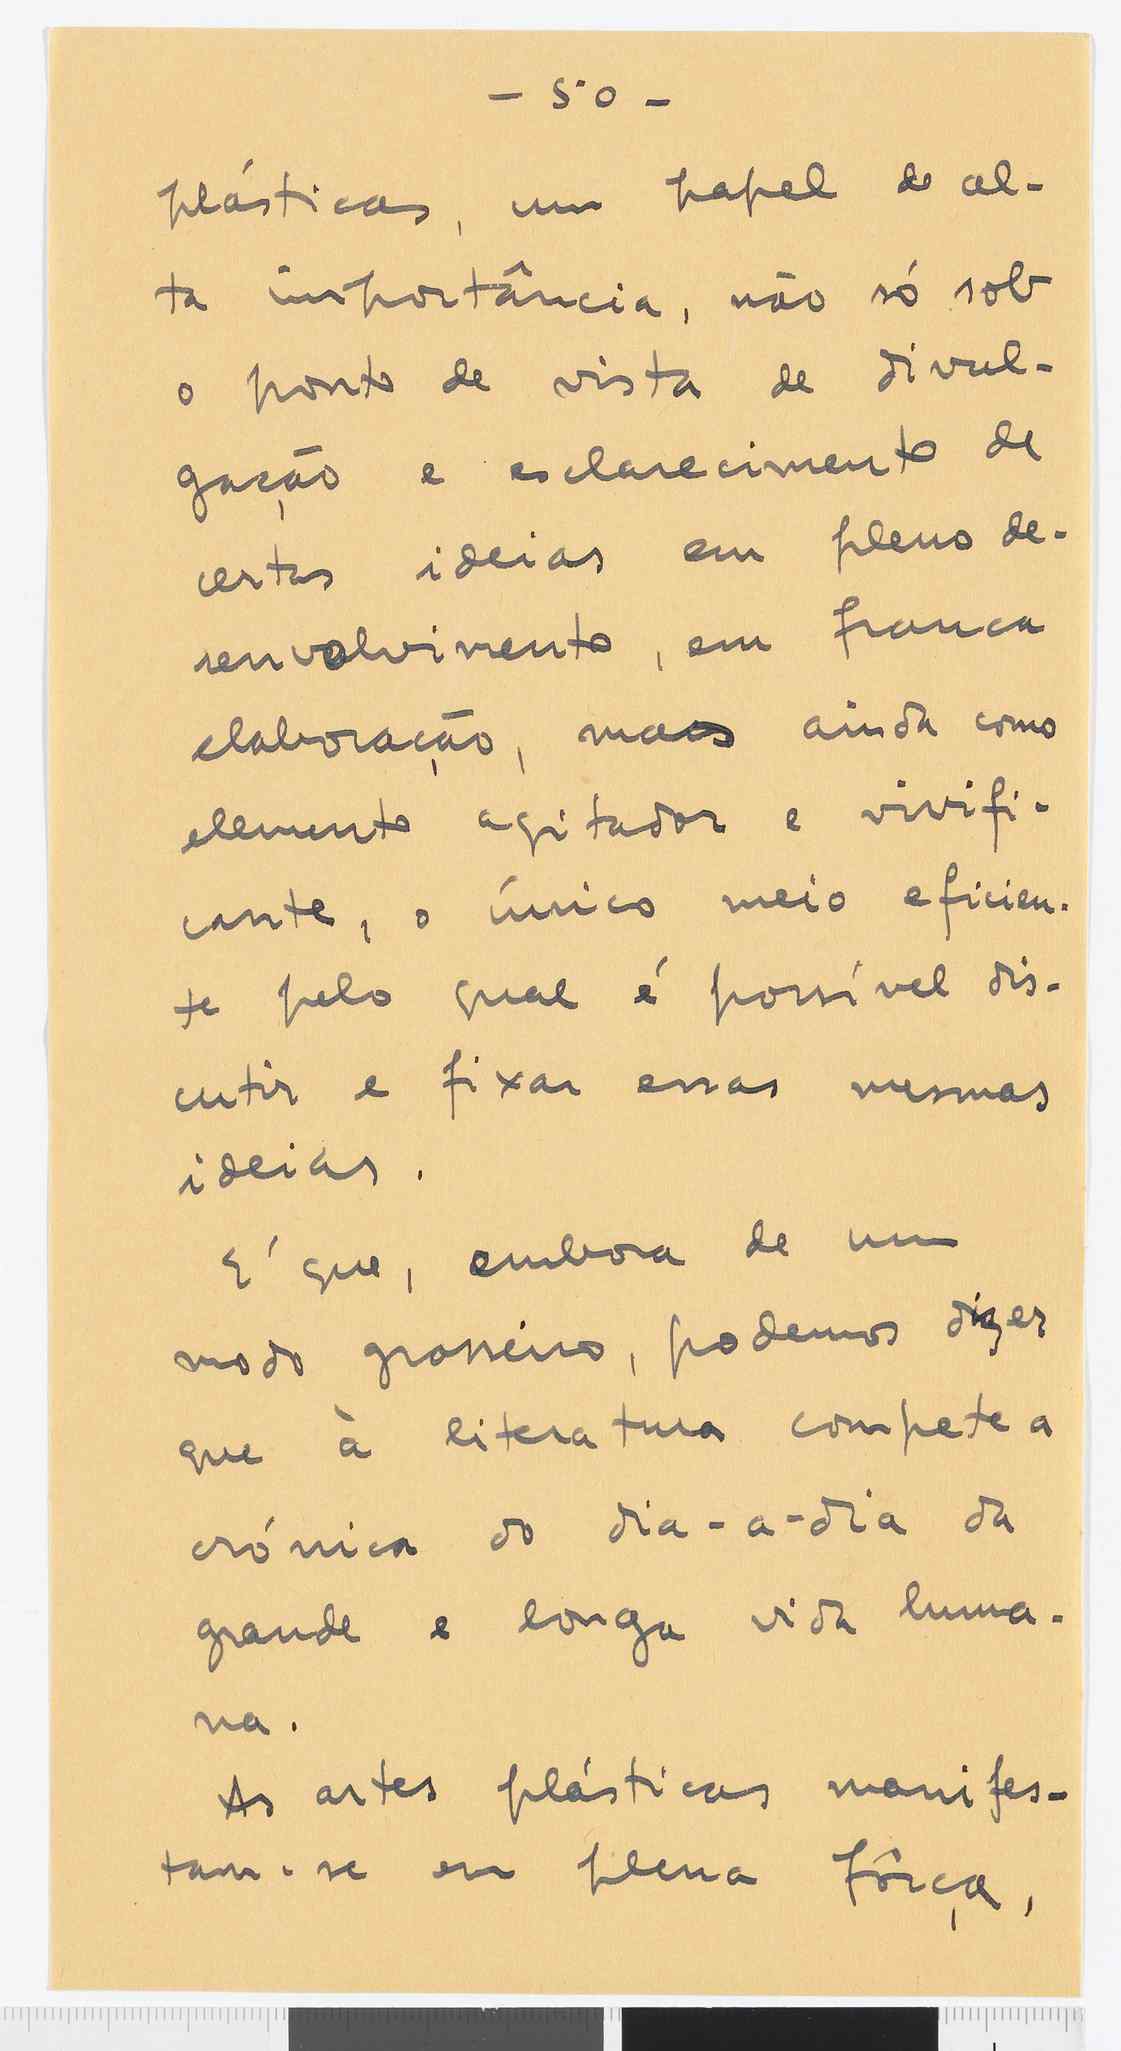 - 50 -
plásticas, um papel de al-
ta importância, não só sob
o ponto de vista de divul-
gação e esclarecimento de
certas ideias em pleno de-
senvolvimento, em franca
elaboração, mas ainda como
elemento agitador e vivifi-
cante, o único meio eficien-
te pelo qual é possível dis-
cutir e fixar essas mesmas
ideias.
É que, embora de um
modo grosseiro, podemos dizer
que à literatura compete a
crónica do dia-a-dia da
grande e longa vida huma-
na.
As artes plásticas manifes-
tam-se em plena fôrça,